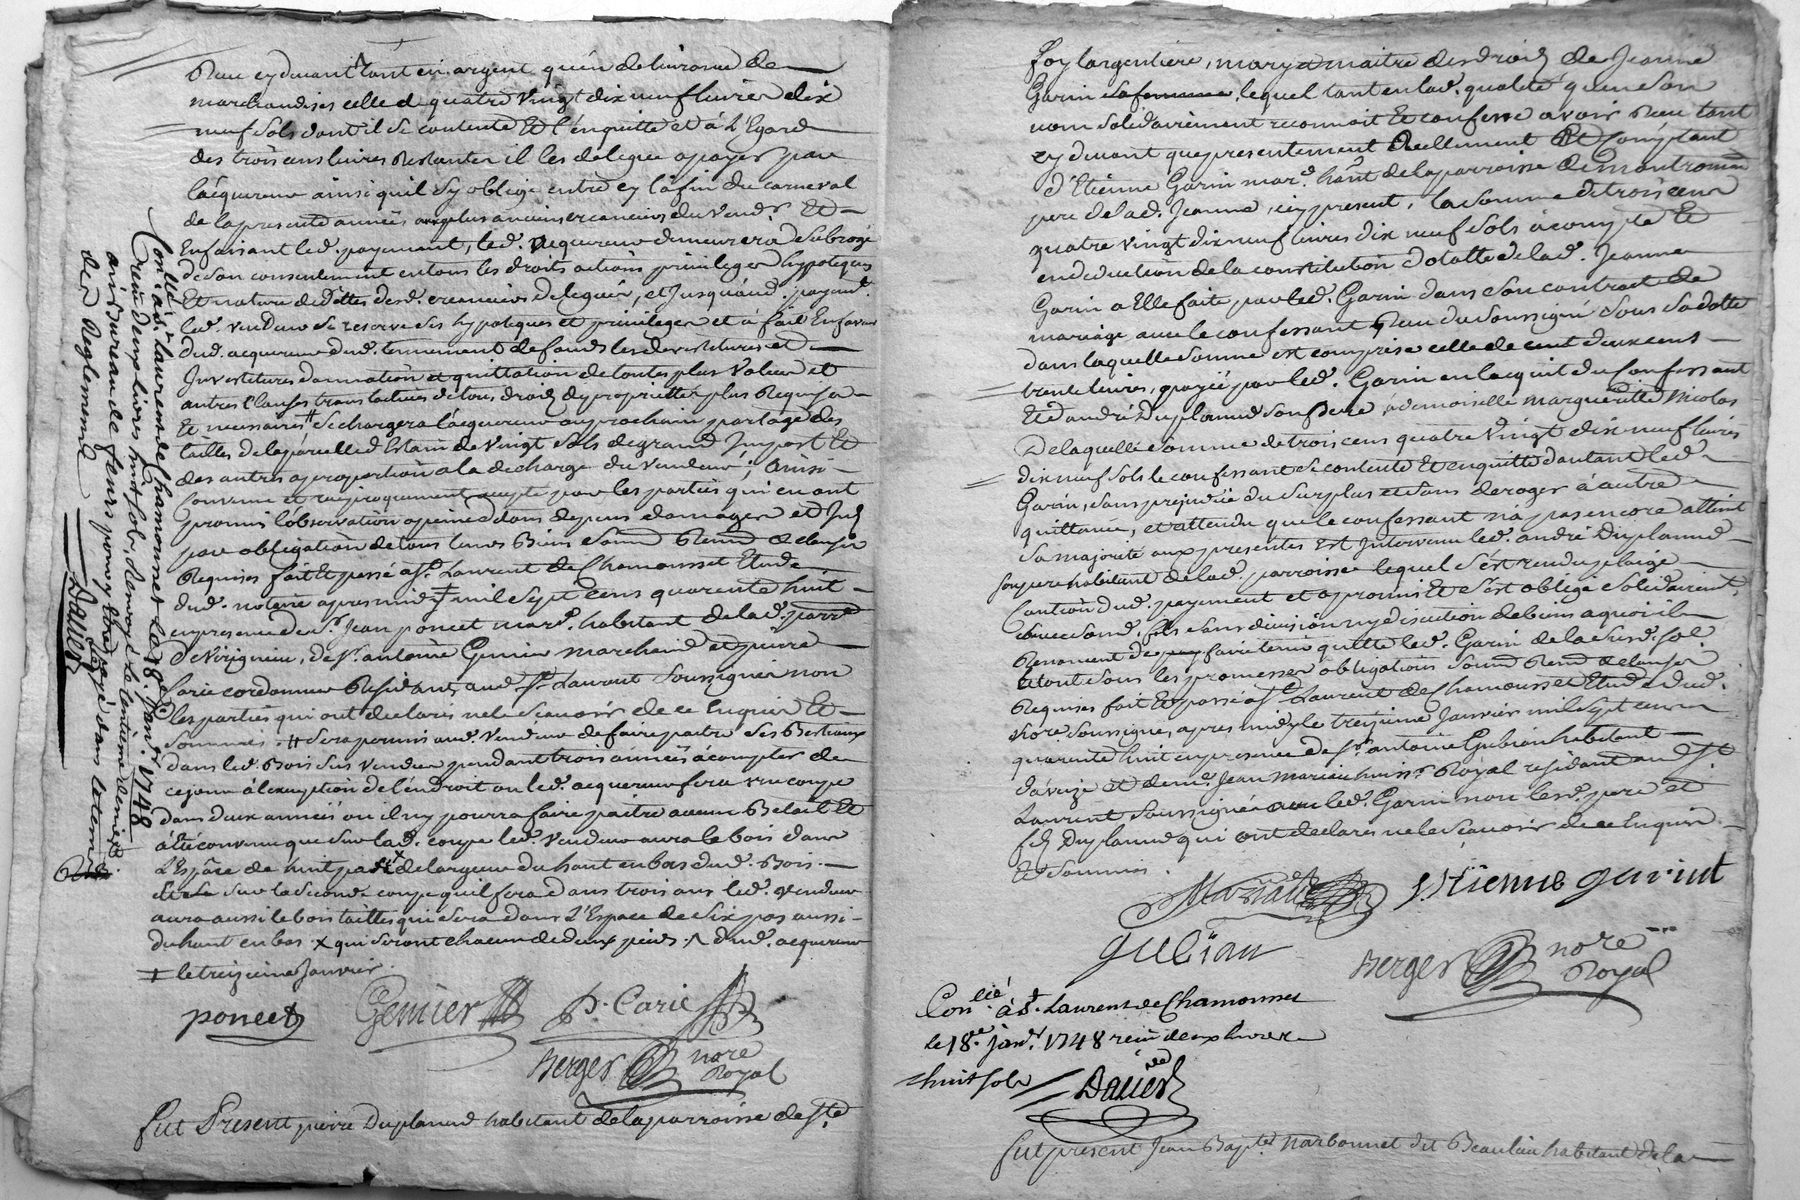 Reçu cy devant tant en argent qu'en delivrance de
marchandises celle de quatre vingt dix neuf livres dix
neuf sols dont il se contente Et l'enquitte et à L'Egard
des trois cens livres Restantes il les delegue a payer par
lacquereur ainsi quil s'y oblige entre cy lafin du carneval
de la presente année aux plus anciens creanciers du vend.r Et
Enfaisant led. payement, led. acquereur demeurera subrogé
de son consentement en tous les droits actions privileges hypoteques
Et nature de dettes desd. creanciers delegués, et Jusqu'aud. payem.t
led. vendeur se reserve ses hypoteques et privileges et à fait En faveur
dud. acquereur dud. tennement de fonds les devestitures et
Investitures donnation et quittation de toutes plus Values et
autres Clauses translatives de tous droits de proprietté plus Requises
Et necessaires # Se chargera l'acquereur au prochain partage des
tailles de la parcelle d'Estain de Vingt sols de grand Impost Et
des autres a proportion a la decharge du Vendeur, Ainsi
Convenu et reciproquement accepté par les parties qui en ont
promis l'observation a peine de tous depens domages et Jnts
par obligation de tous leurs Biens soumis Renon.n & clauses
Requises fait Et passé a S.t Laurent de Chamousset Etude
dud. notaire apres midy + mil sept cens quarente huit
en presence de s.r Jean poncet mar.d habitant de lad. parr.e
de Virigneu, de S.r antoine Genier marchand et pierre
Carie cordonnier Residants aud. S.t Laurent Soussignés non
les parties qui ont declaré ne le Sçavoir de ce Enquis Et
Sommés. # Sera permis aud. Vendeur de faire paitre ses Bestiaux
dans led. Bois sus vendu pendant trois années à compter de
ce jour à l'exception de l'endroit ou led. acquereur fera une coupe
dans deux années ou il n'y pourra faire paitre aucun Betail Et
à été convenu que sur lad. coupe led. Vendeur aura le bois dans
L'Espace de huit pas x de largeur du haut en bas dud. Bois.
et sur la Seconde coupe qu'il fera dans trois ans led. Vendeur
aura aussi le bois taillis qui sera dans L'Espace de Six pas aussi
du haut en bas. x qui seront chacun de deux pieds. dud. acquereur
+ le treizieme Janvier.
poncet Genier P. Carie
Berger no.re Royal
Fut Present pierre Duplanud habitant de la parroisse de S.te
Con.llé à S.t Laurens de Chamousset le 18.e Janv.r 1748
Reçu deux livres huit sols, Renvoyé le Centieme denier
au Bureau de feurs pour y etre payé dans le tems
des Reglements Davier
foy l'argentiere, mary & maitre des droits de Jeanne
Garin sa femme, lequel tant en lad. qualité qu'en son
nom solidairement reconnoit Et confesse avoir Reçu tant
cy devant que presentement Reellement Et Comptant
d'Etienne Garin mar.d hant de la parroisse de montromant
pere de lad. Jeanne, icy present, la somme de trois cens
quatre vingt dix neuf livres dix neuf sols à compte Et
en deduction de la constitution dotalle de lad. Jeanne
Garin a Elle faite par led. Garin dans son contract de
mariage avec le confessant Reçu du Soussigné sous sa datte
dans laquelle somme est comprise celle de cent deux cens
trente livres, payée par led. Garin en l'acquit du Confessant
Et d'andré Duplanud son frere à demoiselle margueritte Nicolas
De laquelle somme de trois cens quatre Vingt dix neuf livres
dix neuf sols le confessant se contente Et en quitte d'autant led.
Garin, sans prejudice du surplus et sans deroger à autre
quittance, et attendu que le confessant n'a pas encore atteint
sa majorité aux presentes est Intervenu led. andré Duplanud
son pere habitant de lad. parroisse lequel s'est rendu pleige
Caution dud. payement et a promis Et s'est obligé Solidairem.t
avec sond. fils sans division ny discution de biens a quoi il
Renoncent de faire tenir quitte led. Garin de la Susd. so.e
Et tout sous les promesses obligations soum.n Renon.n & clauses
Requises fait Et passé a S.t Laurent de Chamousset Etude dud.
no.re Soussigné, apres midy le treizieme Janvier mil sept cens
quarente huit en presence de S.r antoine Gubian habitant
d'aveize et de m.e Jean Mariau huiss.r Royal residant aud. S.t
Laurent Soussignés avec led. Garin non lesd. pere et
fils Duplanud qui ont declaré ne le Sçavoir de ce Enquis
Et Sommés.
Mariau Etienne garint
guBian
Berger no.re Royal
Con.llé à S.t Laurens de Chamousset
le 18.e janv.r 1748 reçu deux livres
huit sols Davier
Fut present Jean Bap.te Narbonnet dit Beaulieu habitant de la